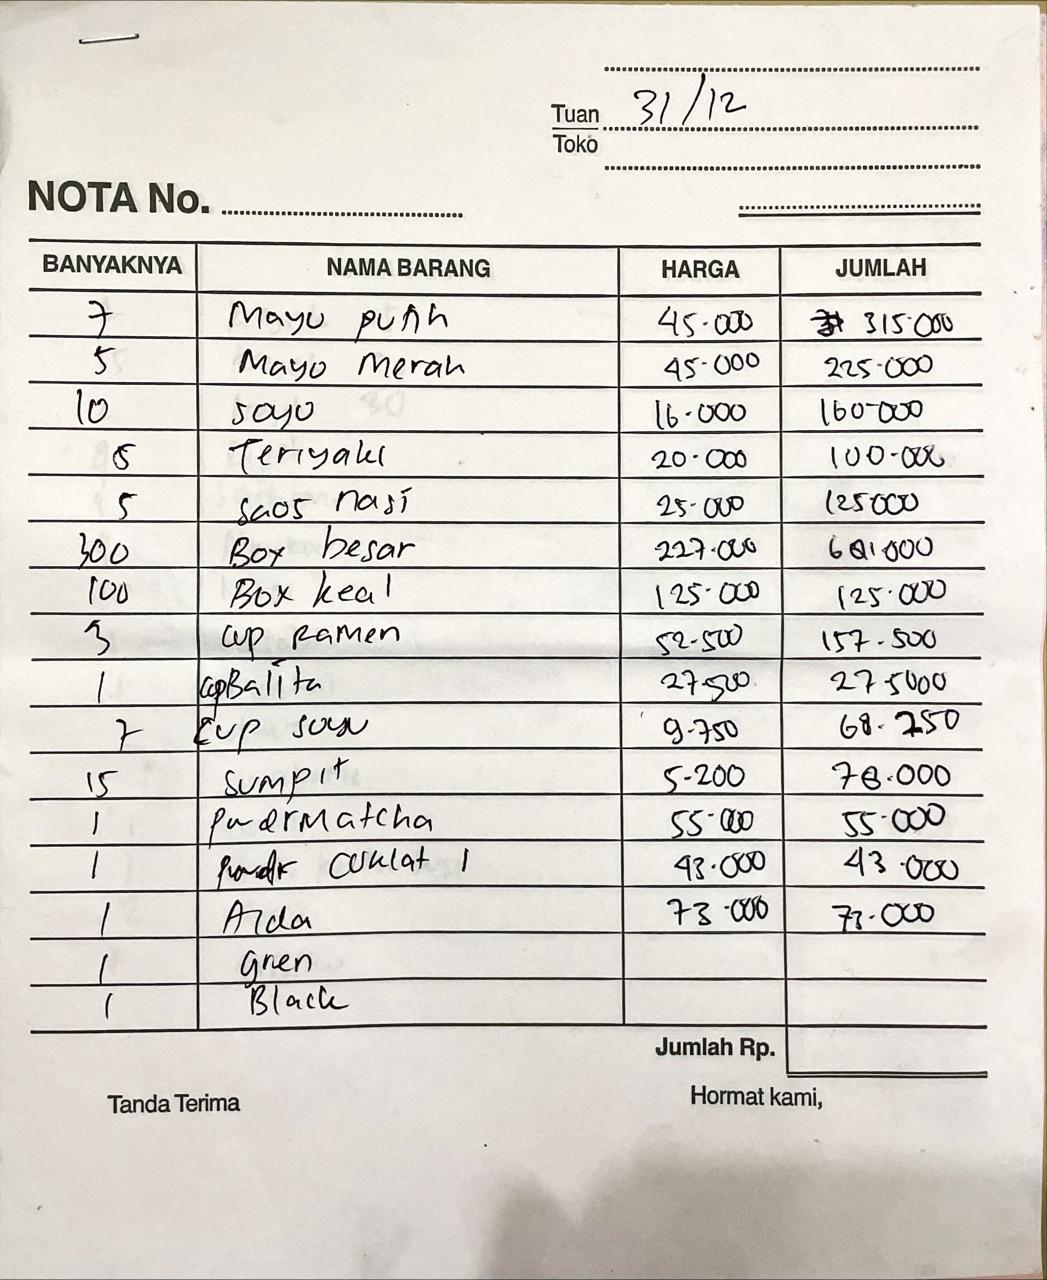 31/12
Tuan
Toko
NOTA No.
BANYAKNYA NAMA BARANG HARGA JUMLAH
7 Mayo putih 45.000 315.000
5 Mayo Merah 45.000 225.000
10 soyo 16.000 160.000
5 Teriyaki 20.000 100.000
5 saos nasi 25.000 125000
300 Box besar 227.000 681.000
100 Box kecil 125.000 125.000
3 cup Ramen 52.500 157.500
1 cup Balita 27.500 27.5000
7 Cup 9.750 68.250
15 sumpit 5.200 78.000
1 Matcha 55.000 55.000
1 1 43.000 43.000
1 Aida 73.000 73.000
1 gren
1 Black
Jumlah Rp.
Tanda Terima Hormat kami,